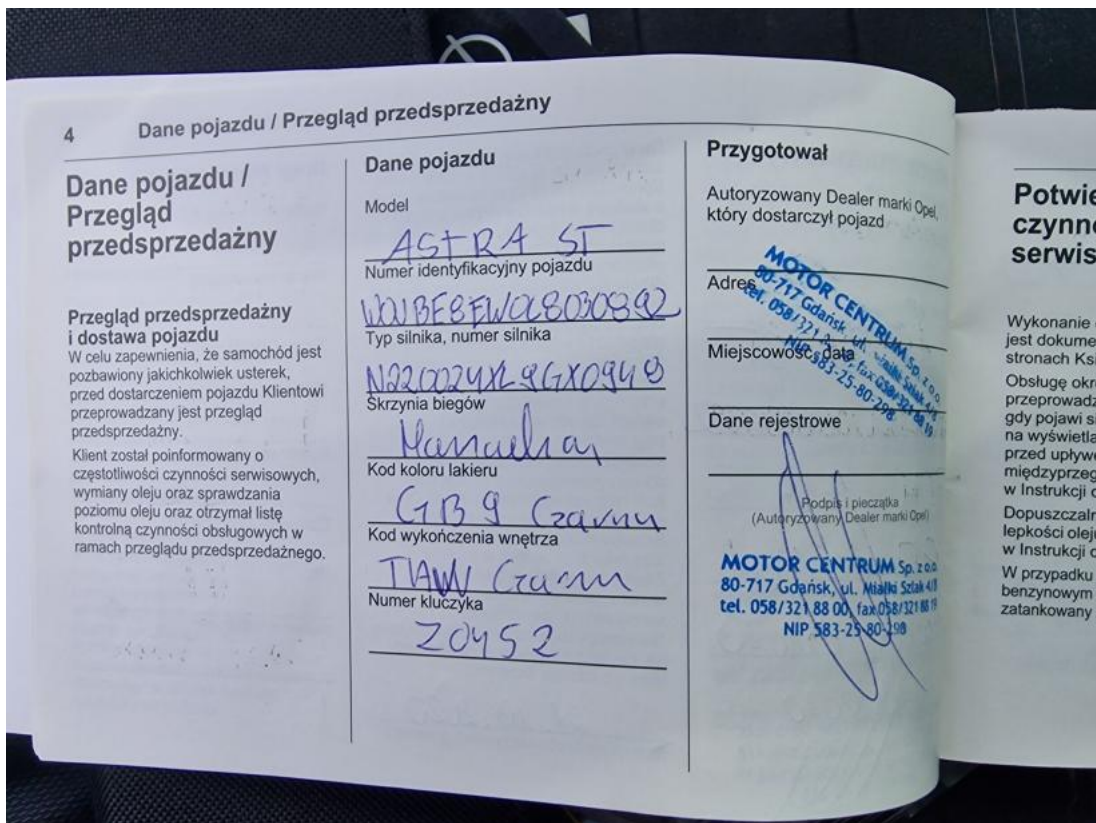 4 Dane pojazdu / Przegląd przedsprzedażny
Dane pojazdu /
Przegląd
przedsprzedażny
Przegląd przedsprzedażny
i dostawa pojazdu
W celu zapewnienia, że samochód jest
pozbawiony jakichkolwiek usterek,
przed dostarczeniem pojazdu Klientowi
przeprowadzany jest przegląd
przedsprzedażny.
Klient został poinformowany o
częstotliwości czynności serwisowych,
wymiany oleju oraz sprawdzania
poziomu oleju oraz otrzymał listę
kontrolną czynności obsługowych w
ramach przeglądu przedsprzedażnego.
Dane pojazdu
Model
ASTRA ST
Numer identyfikacyjny pojazdu
W0VBE8EW0L8030892
Typ silnika, numer silnika
Skrzynia biegów
Kod koloru lakieru
GB9
Kod wykończenia wnętrza
Numer kluczyka
Z0452
Przygotował
Autoryzowany Dealer marki Opel,
który dostarczył pojazd
Adres
Miejscowość, data
Dane rejestrowe
MOTOR CENTRUM Sp. z o.o.
80-717 Gdańsk, ul. Miałki Szlak 4/8
tel. 058/321 88 00, fax 058/321 88 19
NIP 583-25-80-298
Podpis i pieczątka
(Autoryzowany Dealer marki Opel)
MOTOR CENTRUM Sp. z o.o.
80-717 Gdańsk, ul. Miałki Szlak 4/8
tel. 058/321 88 00, fax 058/321 88 19
NIP 583-25-80-298
Potwie
czynno
serwis
Wykonanie
jest dokume
stronach Ksi
Obsługę okr
przeprowadz
gdy pojawi s
na wyświetla
przed upływe
międzyprzeg
w Instrukcji o
Dopuszczaln
lepkości oleju
w Instrukcji o
W przypadku
benzynowym
zatankowany